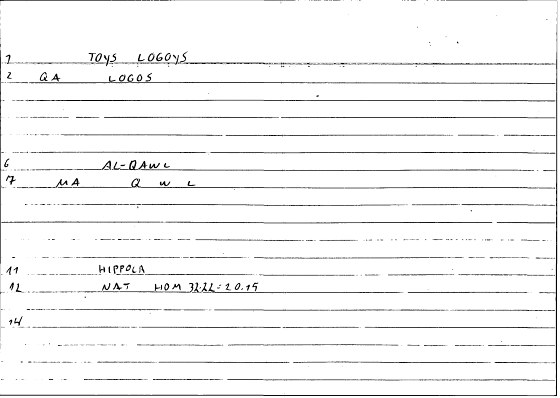 1 TOYS LOGOYS
2 QA LOGOS
6 AL-QAWL
7 MA Q W L
11 HIPPOLA
12 NAT HOM 32.22 = 20.15
14